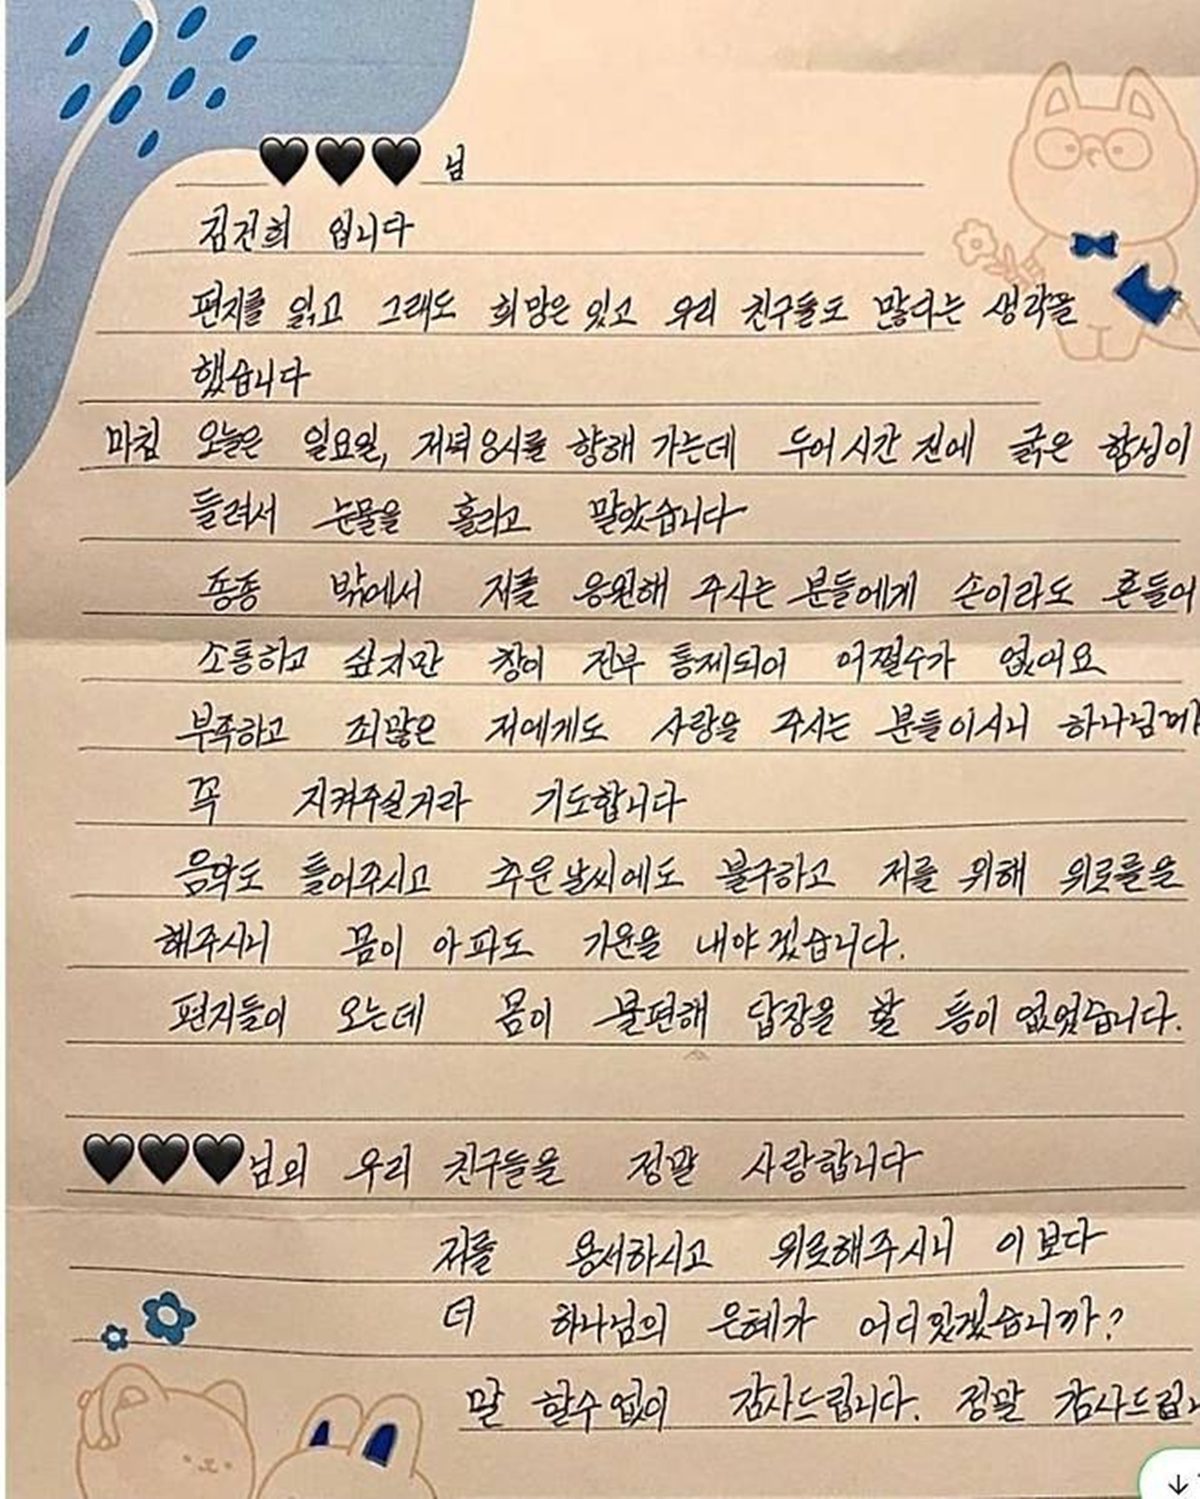 🖤🖤🖤 님
김건희 입니다
편지를 읽고 그래도 희망은 있고 우리 친구들도 많다는 생각을
했습니다
마침 오늘은 일요일, 저녁 8시를 향해 가는데 두어시간 전에 굵은 함성이
들려서 눈물을 흘리고 말았습니다
종종 밖에서 저를 응원해 주시는 분들에게 손이라도 흔들어
소통하고 싶지만 창이 전부 통제되어 어쩔수가 없어요
부족하고 죄많은 저에게도 사랑을 주시는 분들이시니 하나님께서
꼭 지켜주실거라 기도합니다
음악도 틀어주시고 추운날씨에도 불구하고 저를 위해 위로를을
해주시니 몸이 아파도 기운을 내야겠습니다.
편지들이 오는데 몸이 불편해 답장을 할 틈이 없었습니다.
🖤🖤🖤님의 우리 친구들을 정말 사랑합니다
저를 용서하시고 위로해주시니 이보다
더 하나님의 은혜가 어디있겠습니까?
말 할수없이 감사드립니다. 정말 감사드립니